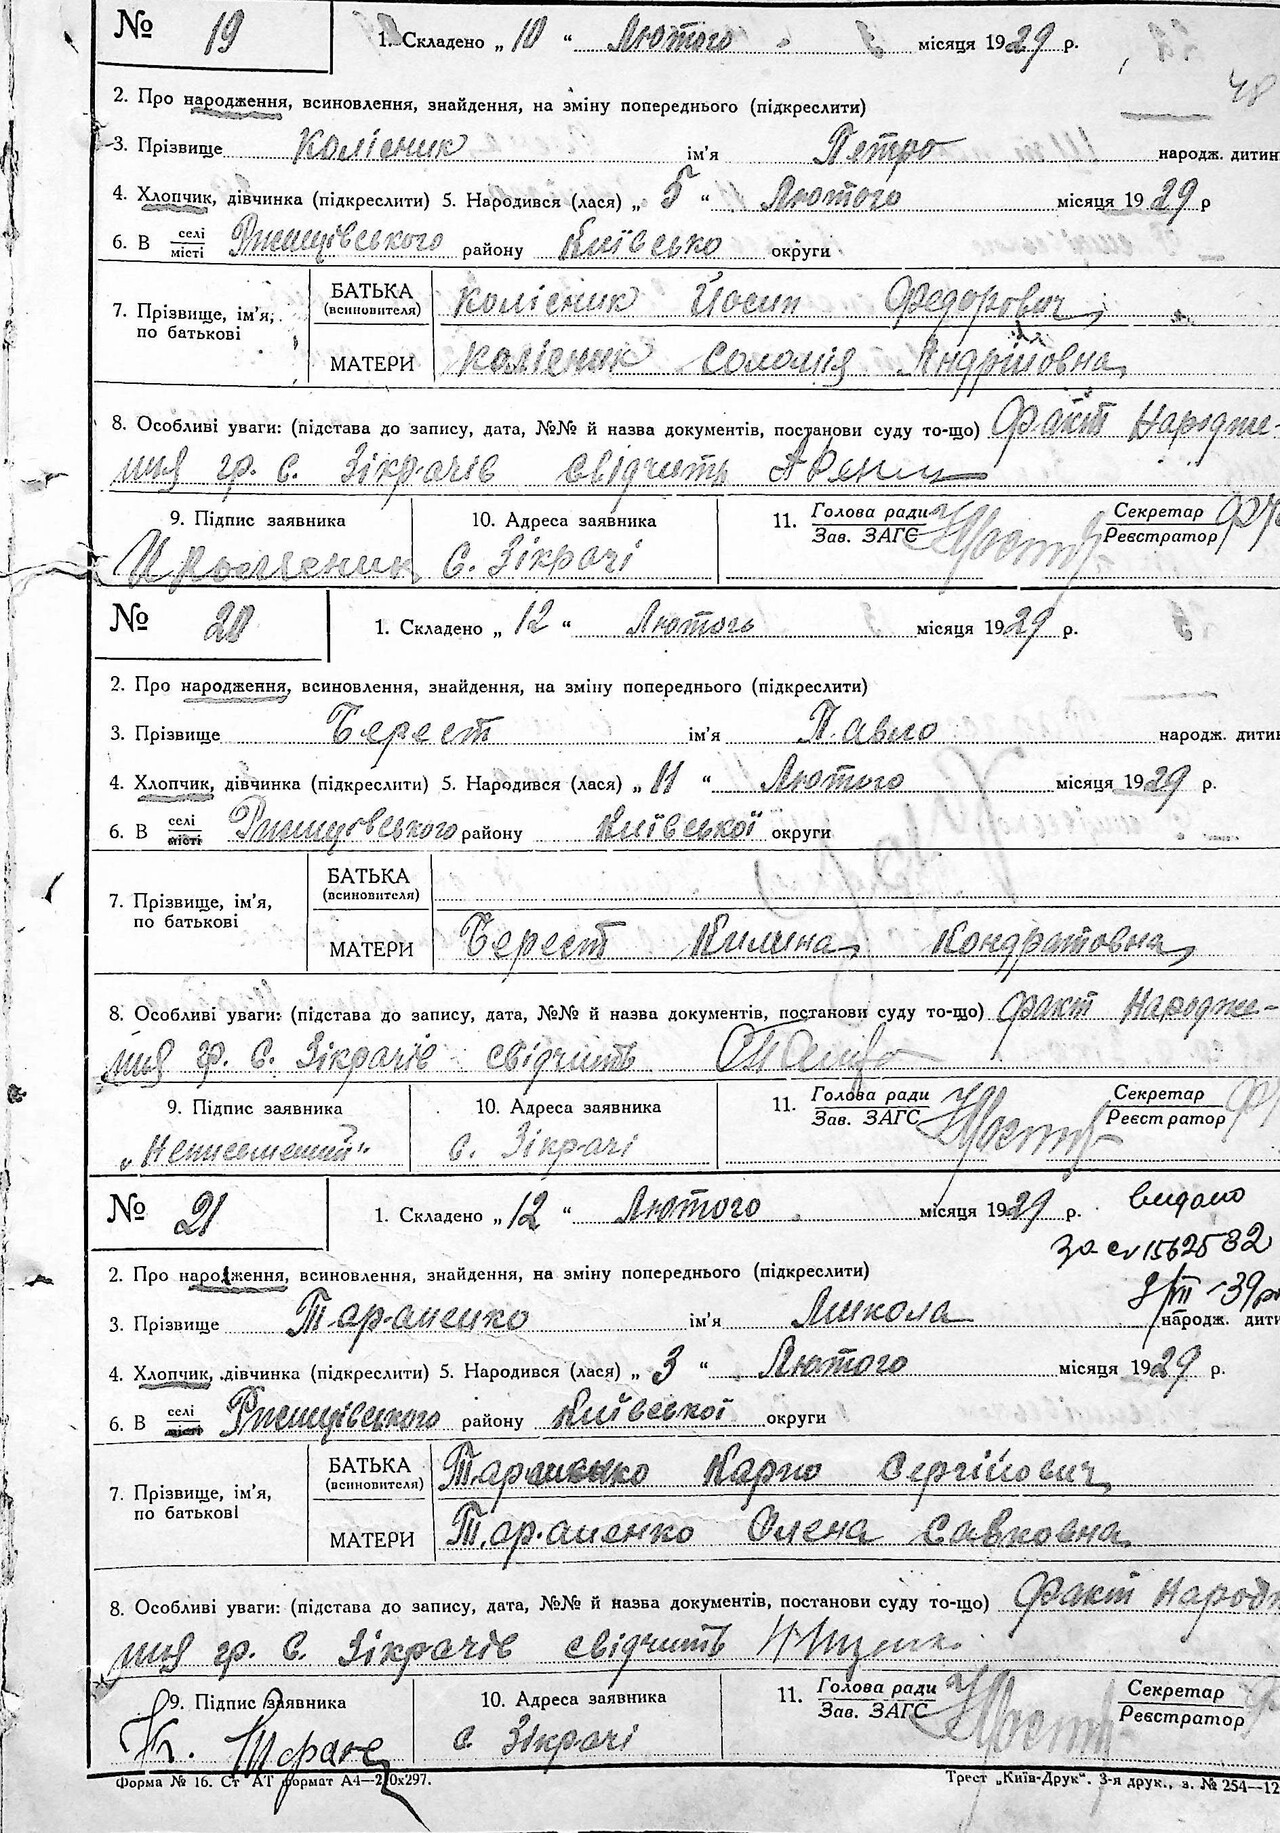 № 19 1. Складено „ 10 “ Лютого місяця 1929 р.
48
2. Про народження, всиновлення, знайдення, на зміну попереднього (підкреслити)
3. Прізвище Колісник ім'я Петро народж. дитин
4. Хлопчик, дівчинка (підкреслити) 5. Народився (лася) „ 5 “ Лютого місяця 1929 р
6. В селі місті Ржищівського району Київсько округи
7. Прізвище, ім'я, по батькові БАТЬКА (всиновителя) Колісник Йосип Федорович
МАТЕРИ Колісник Соломія Андріївна
8. Особливі уваги: (підстава до запису, дата, №№ й назва документів, постанови суду то-що) Факт Народже-
ння гр. С. Зікрачів свідчить
9. Підпис заявника 10. Адреса заявника 11. Голова ради Зав. ЗАГС Секретар Реєстратор
с. Зікрачі
№ 20 1. Складено „ 12 “ Лютого місяця 1929 р.
2. Про народження, всиновлення, знайдення, на зміну попереднього (підкреслити)
3. Прізвище Берест ім'я Павло народж. дитин
4. Хлопчик, дівчинка (підкреслити) 5. Народився (лася) „ 11 “ Лютого місяця 1929 р.
6. В селі місті Ржищівського району Київської округи
7. Прізвище, ім'я, по батькові БАТЬКА (всиновителя)
МАТЕРИ Берест Килина Кондратовна
8. Особливі уваги: (підстава до запису, дата, №№ й назва документів, постанови суду то-що) Факт Народже-
ння гр. С. Зікрачів свідчить
9. Підпис заявника 10. Адреса заявника 11. Голова ради Зав. ЗАГС Секретар Реєстратор
„Неписьменний“ с. Зікрачі
№ 21 1. Складено „ 12 “ Лютого місяця 1929 р. видано
за 1562532
2. Про народження, всиновлення, знайдення, на зміну попереднього (підкреслити)
3. Прізвище Тараненко ім'я Микола народж. дити
4. Хлопчик, дівчинка (підкреслити) 5. Народився (лася) „ 3 “ Лютого місяця 1929 р.
6. В селі місті Ржищівського району Київської округи
7. Прізвище, ім'я, по батькові БАТЬКА (всиновителя) Тараненко Карпо Сергійович
МАТЕРИ Тараненко Олена Савковна
8. Особливі уваги: (підстава до запису, дата, №№ й назва документів, постанови суду то-що) Факт Народж
ння гр. С. Зікрачів свідчить
9. Підпис заявника 10. Адреса заявника 11. Голова ради Зав. ЗАГС Секретар Реєстратор
с Зікрачі
Форма № 16. Ст АТ формат А4—210х297. Трест „Київ-Друк“. 3-я друк., з. № 254—12